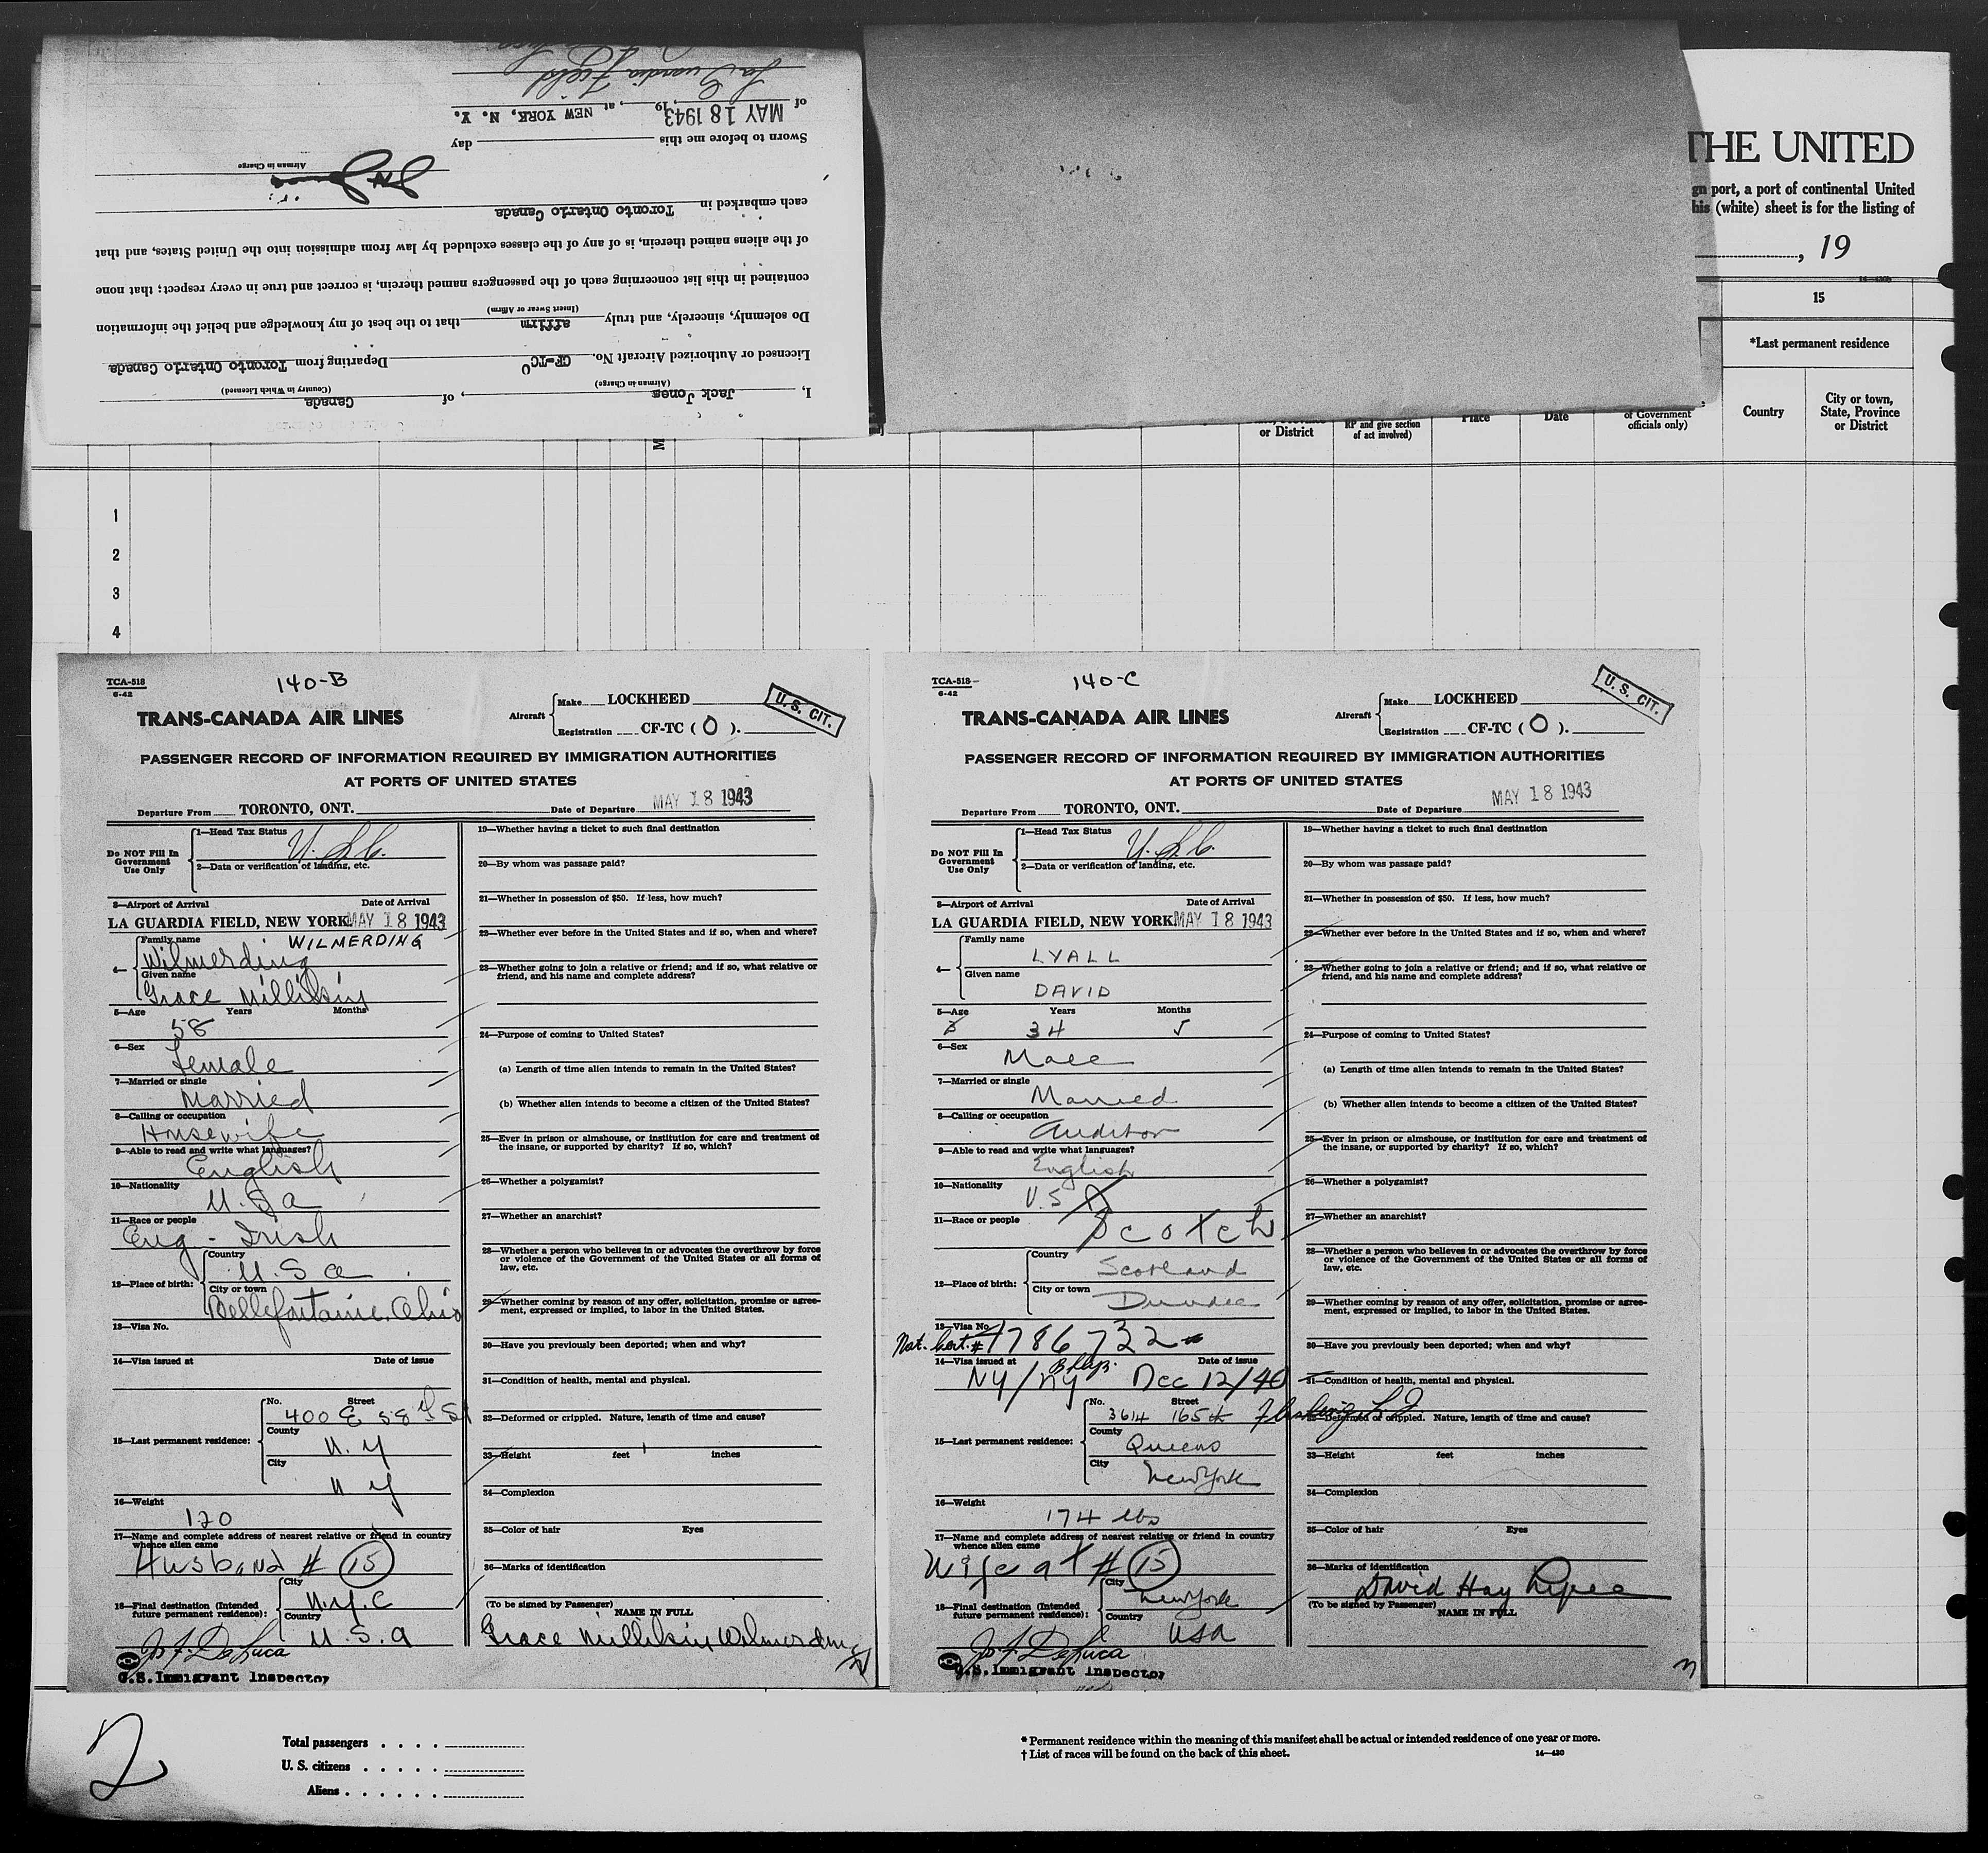 La Guardia Field
of MAY 18 1943, 19 , at NEW YORK, N. Y.
Sworn to before me this day
Airman in Charge
each embarked in Toronto Ontario Canada
of the aliens named therein, is of any of the classes excluded by law from admission into the United States, and that
contained in this list concerning each of the passengers named therein, is correct and true in every respect; that none
(Insert Swear or Affirm)
Do solemnly, sincerely, and truly affirm that to the best of my knowledge and belief the information
Licensed or Authorized Aircraft No. CF-TCO Departing from Toronto Ontario Canada
(Airman in Charge) (Country in Which Licensed)
I, Jack Jones, of Canada
THE UNITED
gn port, a port of continental United
his (white) sheet is for the listing of
, 19
15
*Last permanent residence
Country
City or town,
State, Province
or District
or District
RP and give section
of act involved)
Place
Date
of Government
officials only)
M
1
2
3
4
TCA-518
6-42
140-B
TRANS-CANADA AIR LINES
Aircraft
Make LOCKHEED
Registration CF-TC ( O ).
U. S. CIT.
PASSENGER RECORD OF INFORMATION REQUIRED BY IMMIGRATION AUTHORITIES
AT PORTS OF UNITED STATES
Departure From TORONTO, ONT. Date of Departure MAY 18 1943
Do NOT Fill In
Government
Use Only
1—Head Tax Status
U. S. C.
2—Data or verification of landing, etc.
3—Airport of Arrival Date of Arrival
LA GUARDIA FIELD, NEW YORK MAY 18 1943
4—
Family name WILMERDING
Wilmerding
Given name
Grace Millikin
5—Age Years Months
58
6—Sex
Female
7—Married or single
Married
8—Calling or occupation
Housewife
9—Able to read and write what languages?
English
10—Nationality
U.S a
11—Race or people
Eng - Irish
12—Place of birth:
Country
U.S a
City or town
Bellefontaine, Ohio
13—Visa No.
14—Visa issued at Date of issue
15—Last permanent residence:
No. Street
400 E 58th St
County
N. Y
City
N Y
16—Weight
120
17—Name and complete address of nearest relative or friend in country
whence alien came
Husband # 15
18—Final destination (Intended
future permanent residence):
City
N.Y.C
Country
U.S.a
Jo. F. DeLuca
U.S. Immigrant Inspector
19—Whether having a ticket to such final destination
20—By whom was passage paid?
21—Whether in possession of $50. If less, how much?
22—Whether ever before in the United States and if so, when and where?
23—Whether going to join a relative or friend; and if so, what relative or
friend, and his name and complete address?
24—Purpose of coming to United States?
(a) Length of time alien intends to remain in the United States?
(b) Whether alien intends to become a citizen of the United States?
25—Ever in prison or almshouse, or institution for care and treatment of
the insane, or supported by charity? If so, which?
26—Whether a polygamist?
27—Whether an anarchist?
28—Whether a person who believes in or advocates the overthrow by force
or violence of the Government of the United States or all forms of
law, etc.
29—Whether coming by reason of any offer, solicitation, promise or agree-
ment, expressed or implied, to labor in the United States.
30—Have you previously been deported; when and why?
31—Condition of health, mental and physical.
32—Deformed or crippled. Nature, length of time and cause?
33—Height feet inches
34—Complexion
35—Color of hair Eyes
36—Marks of identification
(To be signed by Passenger)
NAME IN FULL
Grace Millikin Wilmerding
TCA-518
6-42
140-C
TRANS-CANADA AIR LINES
Aircraft
Make LOCKHEED
Registration CF-TC ( O ).
U. S. CIT.
PASSENGER RECORD OF INFORMATION REQUIRED BY IMMIGRATION AUTHORITIES
AT PORTS OF UNITED STATES
Departure From TORONTO, ONT. Date of Departure MAY 18 1943
Do NOT Fill In
Government
Use Only
1—Head Tax Status
U. S. C.
2—Data or verification of landing, etc.
3—Airport of Arrival Date of Arrival
LA GUARDIA FIELD, NEW YORK MAY 18 1943
4—
Family name
LYALL
Given name
DAVID
5—Age Years Months
34 5
6—Sex
Male
7—Married or single
Married
8—Calling or occupation
Auditor
9—Able to read and write what languages?
English
10—Nationality
U.S A
11—Race or people
Scotch
12—Place of birth:
Country
Scotland
City or town
Dundee
13—Visa No.
Nat. Cert. # 4786732
14—Visa issued at Date of issue
NY/NY Dec 12/40
15—Last permanent residence:
No. Street
3614 165th Flushing L I
County
Queens
City
New York
16—Weight
174 lbs
17—Name and complete address of nearest relative or friend in country
whence alien came
Wife at # 15
18—Final destination (Intended
future permanent residence):
City
New York
Country
USA
Jo. F. DeLuca
U.S. Immigrant Inspector
19—Whether having a ticket to such final destination
20—By whom was passage paid?
21—Whether in possession of $50. If less, how much?
22—Whether ever before in the United States and if so, when and where?
23—Whether going to join a relative or friend; and if so, what relative or
friend, and his name and complete address?
24—Purpose of coming to United States?
(a) Length of time alien intends to remain in the United States?
(b) Whether alien intends to become a citizen of the United States?
25—Ever in prison or almshouse, or institution for care and treatment of
the insane, or supported by charity? If so, which?
26—Whether a polygamist?
27—Whether an anarchist?
28—Whether a person who believes in or advocates the overthrow by force
or violence of the Government of the United States or all forms of
law, etc.
29—Whether coming by reason of any offer, solicitation, promise or agree-
ment, expressed or implied, to labor in the United States.
30—Have you previously been deported; when and why?
31—Condition of health, mental and physical.
32—Deformed or crippled. Nature, length of time and cause?
33—Height feet inches
34—Complexion
35—Color of hair Eyes
36—Marks of identification
David Hay Lyall
(To be signed by Passenger)
NAME IN FULL
2
Total passengers . . . .
U. S. citizens . . . . .
Aliens . . . . . .
* Permanent residence within the meaning of this manifest shall be actual or intended residence of one year or more.
† List of races will be found on the back of this sheet. 14—430